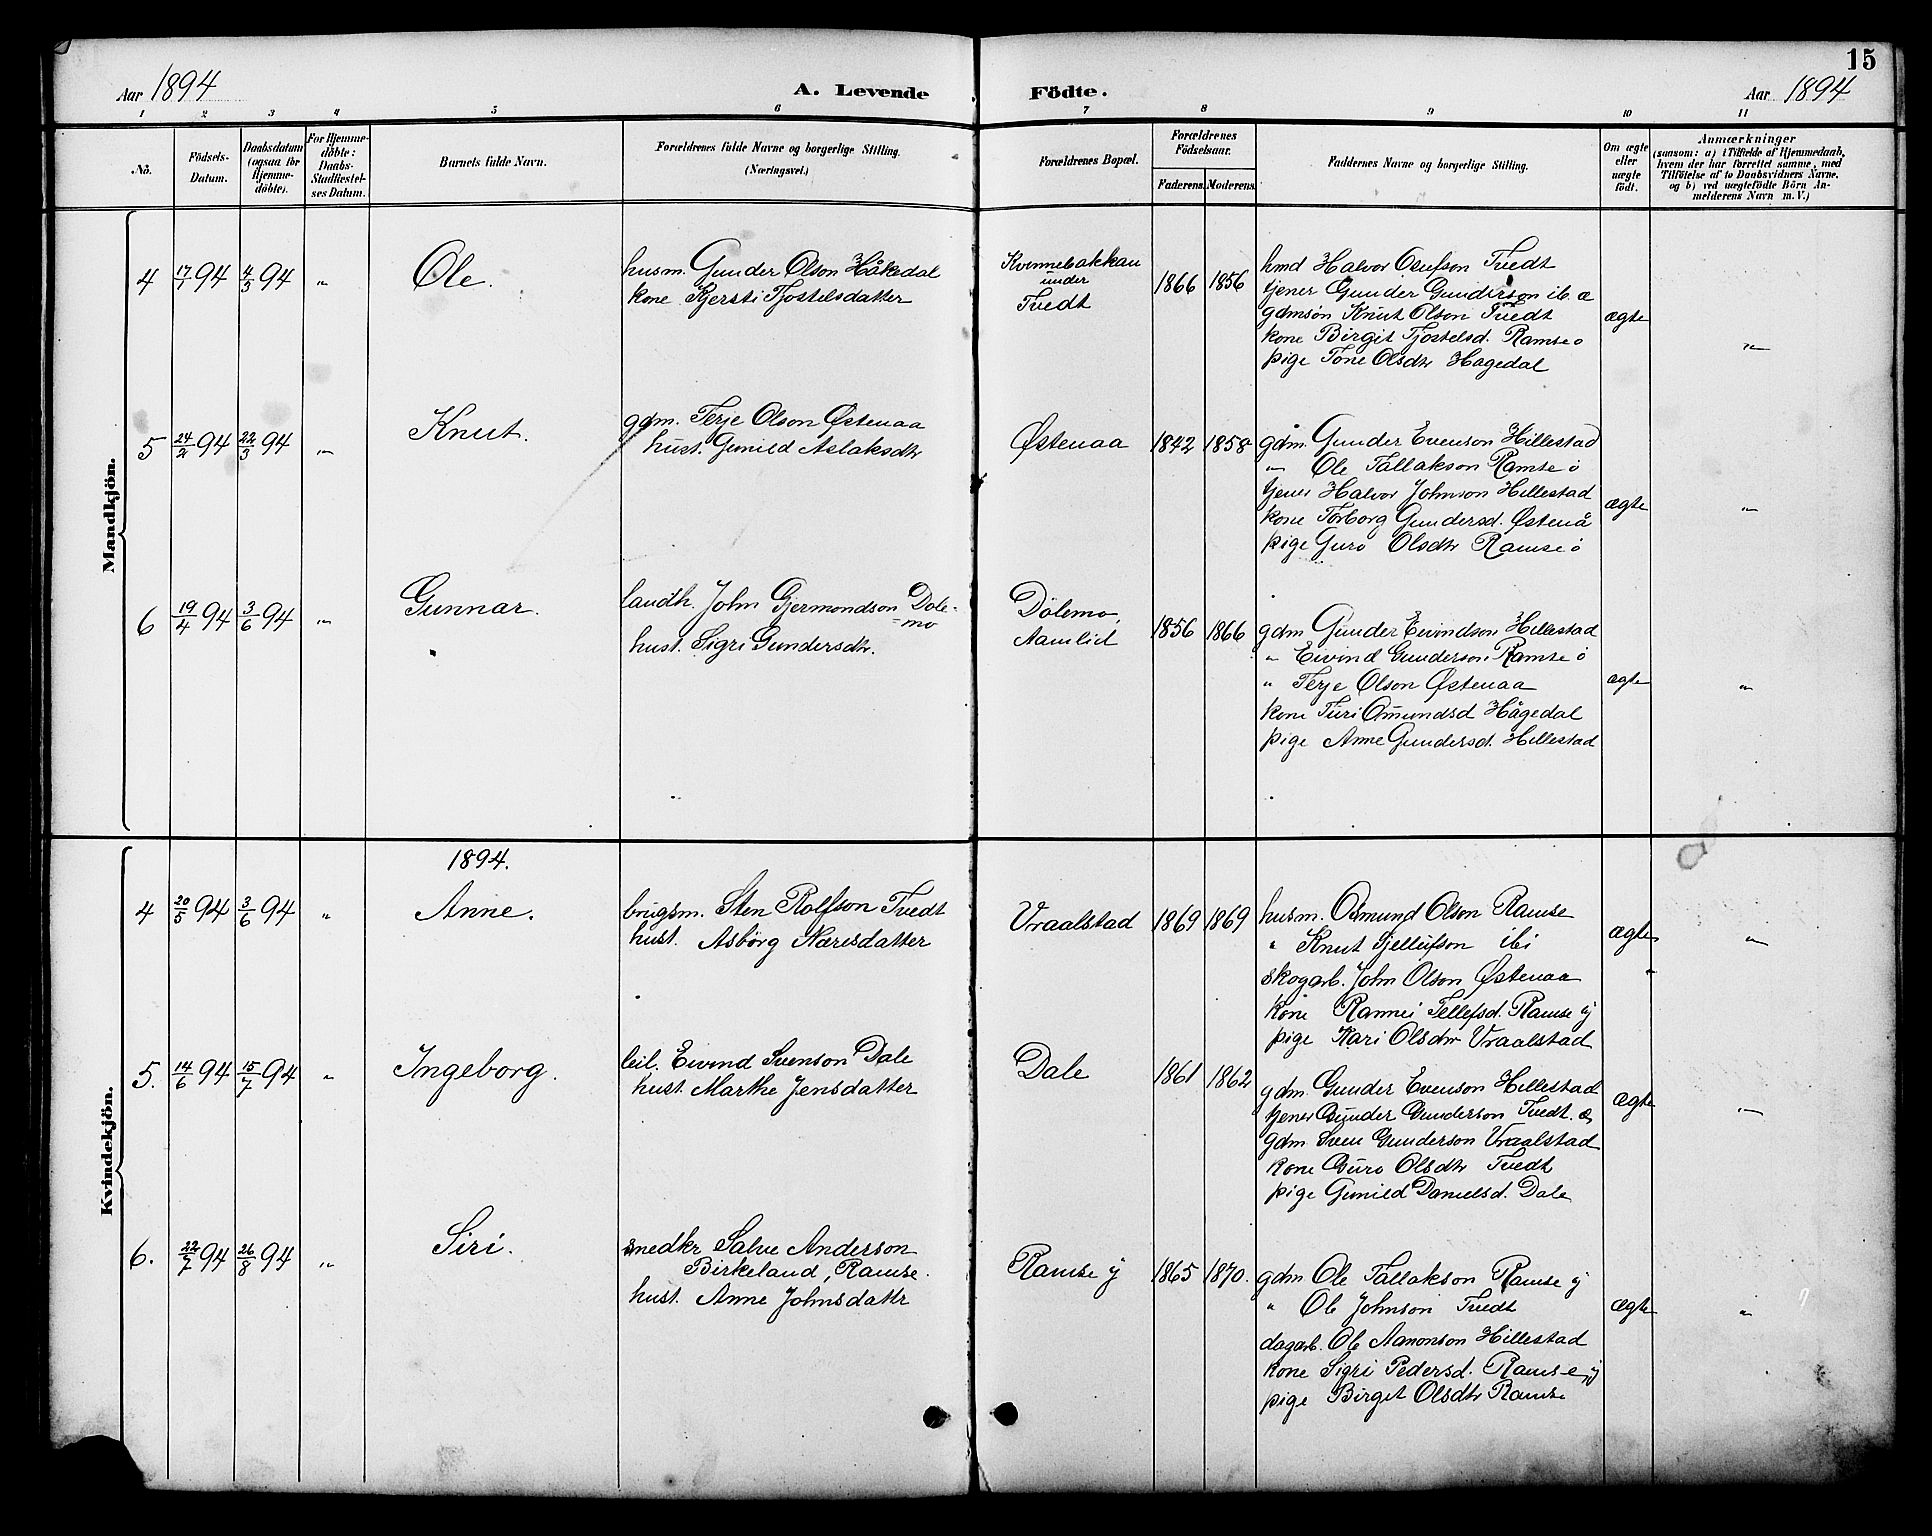 15
Aar 1894 A. Levende Födte. Aar 1894
1 2 3 4 5 6 7 8 9 10 11
No.
Födsels-
Datum.
Daabsdatum
(ogsaa for
Hjemme-
döbte).
For Hjemme-
döbte:
Daabs-
Stadfæstel-
ses Datum.
Barnets fulde Navn.
Forældrenes fulde Navne og borgerlige Stilling.
(Næringsvei.)
Forældrenes Bopæl.
Forældrenes
Födselsaar.
Faderens. Moderens.
Faddernes Navne og borgerlige Stilling.
Om ægte
eller
uægte
födt.
Anmærkninger
(saasom: a) i Tilfælde af Hjemmedaab,
hvem der har forrettet samme, med
Tilföielse af to Daabsvidners Navne,
og b) ved uægtefödte Börn An-
melderens Navn m.V.)
Mandkjön.
4 17/1 94 4/3 94 „ Ole.
husm. Gunder Olson Håkedal
kone Kjersti Tjostelsdatter
Kvennebakkan
under
Tvedt
1866 1856
hmd Halvor Olufson Tvedt
tjener Gunder Gunderson ib. æ
gdmsön Knut Olson Tvedt
kone Birgit Tjostelsd. Ramse o
pige Tone Olsdtr Hagedal
ægte „
5 24/2 94 22/3 94 „ Knut.
gdm. Terje Olson Østenaa
hust. Gunild Aslaksdtr
Østenaa
1842 1858
gdm. Gunder Evenson Hillestad
„ Ole Tallakson Ramse ö
tjener Halvor Johnson Hillestad
kone Torborg Gundersd. Østenå
pige Guro Olsdtr Ramse ö
ægte „
6 19/4 94 3/6 94 „ Gunnar.
landh. John Gjermondson Dole-
=mo
hust. Sigri Gundersdtr.
Dölemo,
Aamlid
1856 1866
gdm Gunder Eivindson Hillestad
„ Eivind Gunderson Ramse ö
„ Terje Olson Østenaa
kone Turi Omundsd Hågedal
pige Anne Gundersd. Hillestad
ægte „
Kvindekjön.
1894.
4 20/5 94 3/6 94 „ Anne.
brugsm. Sten Rolfson Tvedt
hust. Asbörg Næresdatter
Vraalstad
1869 1869
husm. Osmund Olson Ramse
„ Knut Tjellufson ibi
skogarb. John Olson Østenaa
kone Rannei Tellefsd. Ramse y
pige Kari Olsdtr Vraalstad
ægte „
5. 14/6 94 15/7 94 „ Ingeborg.
leil. Eivind Svenson Dale
hust. Marthe Jensdatter
Dale
1861 1862
gdm. Gunder Evenson Hillestad
tjener Gunder Gunderson Tvedt. æ
gdm Sven Gunderson Vraalstad
kone Guro Olsdtr Tvedt
pige Gunild Danielsd. Dale
ægte „
6. 22/7 94 26/8 94 „ Siri.
snedkr Salve Anderson
Birkeland, Ramse.
hust. Anne Johnsdattr
Ramse y
1865 1870.
gdm Ole Tallakson Ramse y
„ Ole Johnson Tvedt
dagarb. Ole Aanonson Hillestad
kone Sigri Pedersd. Ramse y
pige Birget Olsdtr Ramse
ægte „